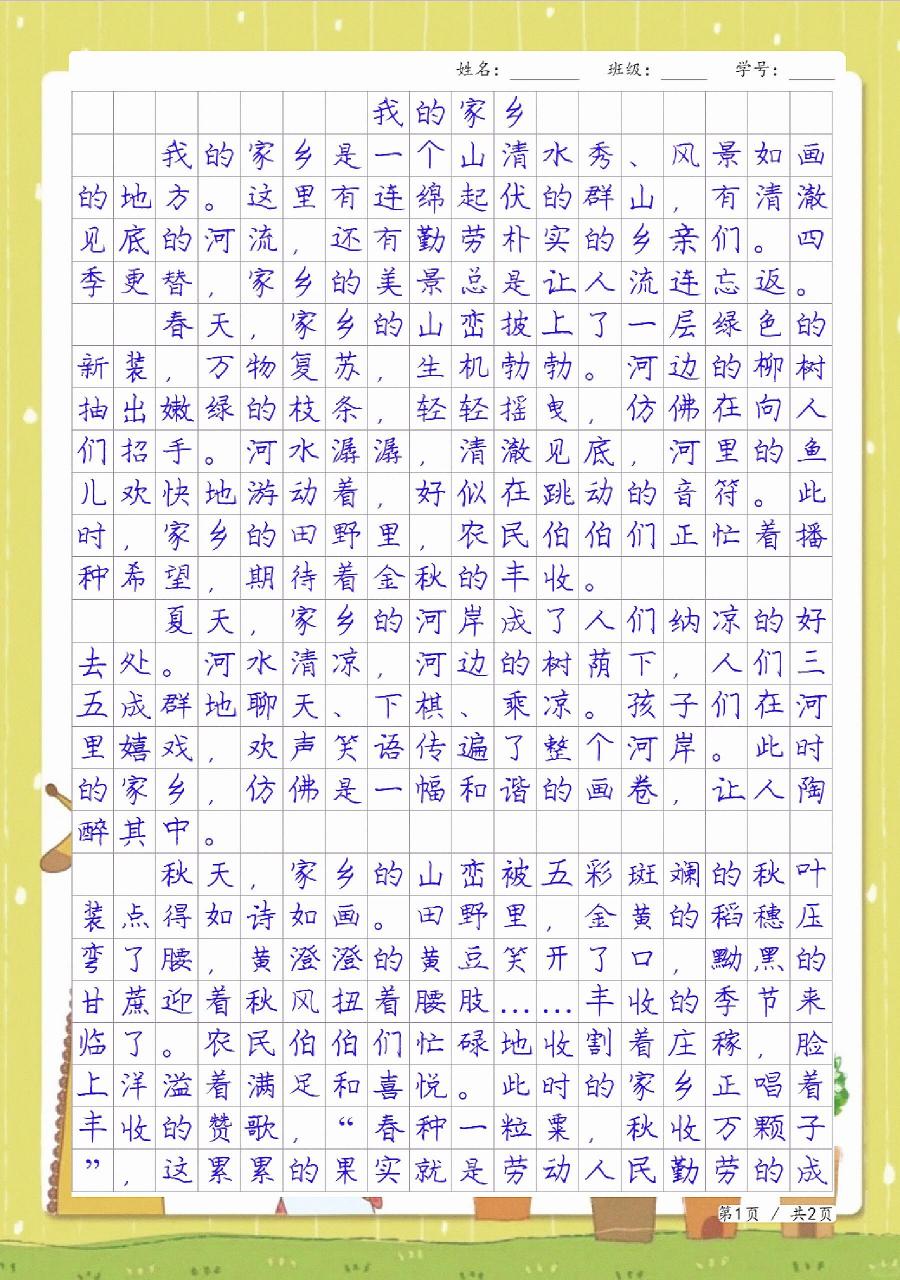 姓名：______ 班级：____ 学号：____
我的家乡
我的家乡是一个山清水秀、风景如画
的地方。这里有连绵起伏的群山，有清澈
见底的河流，还有勤劳朴实的乡亲们。四
季更替，家乡的美景总是让人流连忘返。
春天，家乡的山峦披上了一层绿色的
新装，万物复苏，生机勃勃。河边的柳树
抽出嫩绿的枝条，轻轻摇曳，仿佛在向人
们招手。河水潺潺，清澈见底，河里的鱼
儿欢快地游动着，好似在跳动的音符。此
时，家乡的田野里，农民伯伯们正忙着播
种希望，期待着金秋的丰收。
夏天，家乡的河岸成了人们纳凉的好
去处。河水清凉，河边的树荫下，人们三
五成群地聊天、下棋、乘凉。孩子们在河
里嬉戏，欢声笑语传遍了整个河岸。此时
的家乡，仿佛是一幅和谐的画卷，让人陶
醉其中。
秋天，家乡的山峦被五彩斑斓的秋叶
装点得如诗如画。田野里，金黄的稻穗压
弯了腰，黄澄澄的黄豆笑开了口，黝黑的
甘蔗迎着秋风扭着腰肢……丰收的季节来
临了。农民伯伯们忙碌地收割着庄稼，脸
上洋溢着满足和喜悦。此时的家乡正唱着
丰收的赞歌，“春种一粒粟，秋收万颗子
”，这累累的果实就是劳动人民勤劳的成
第1页 / 共2页